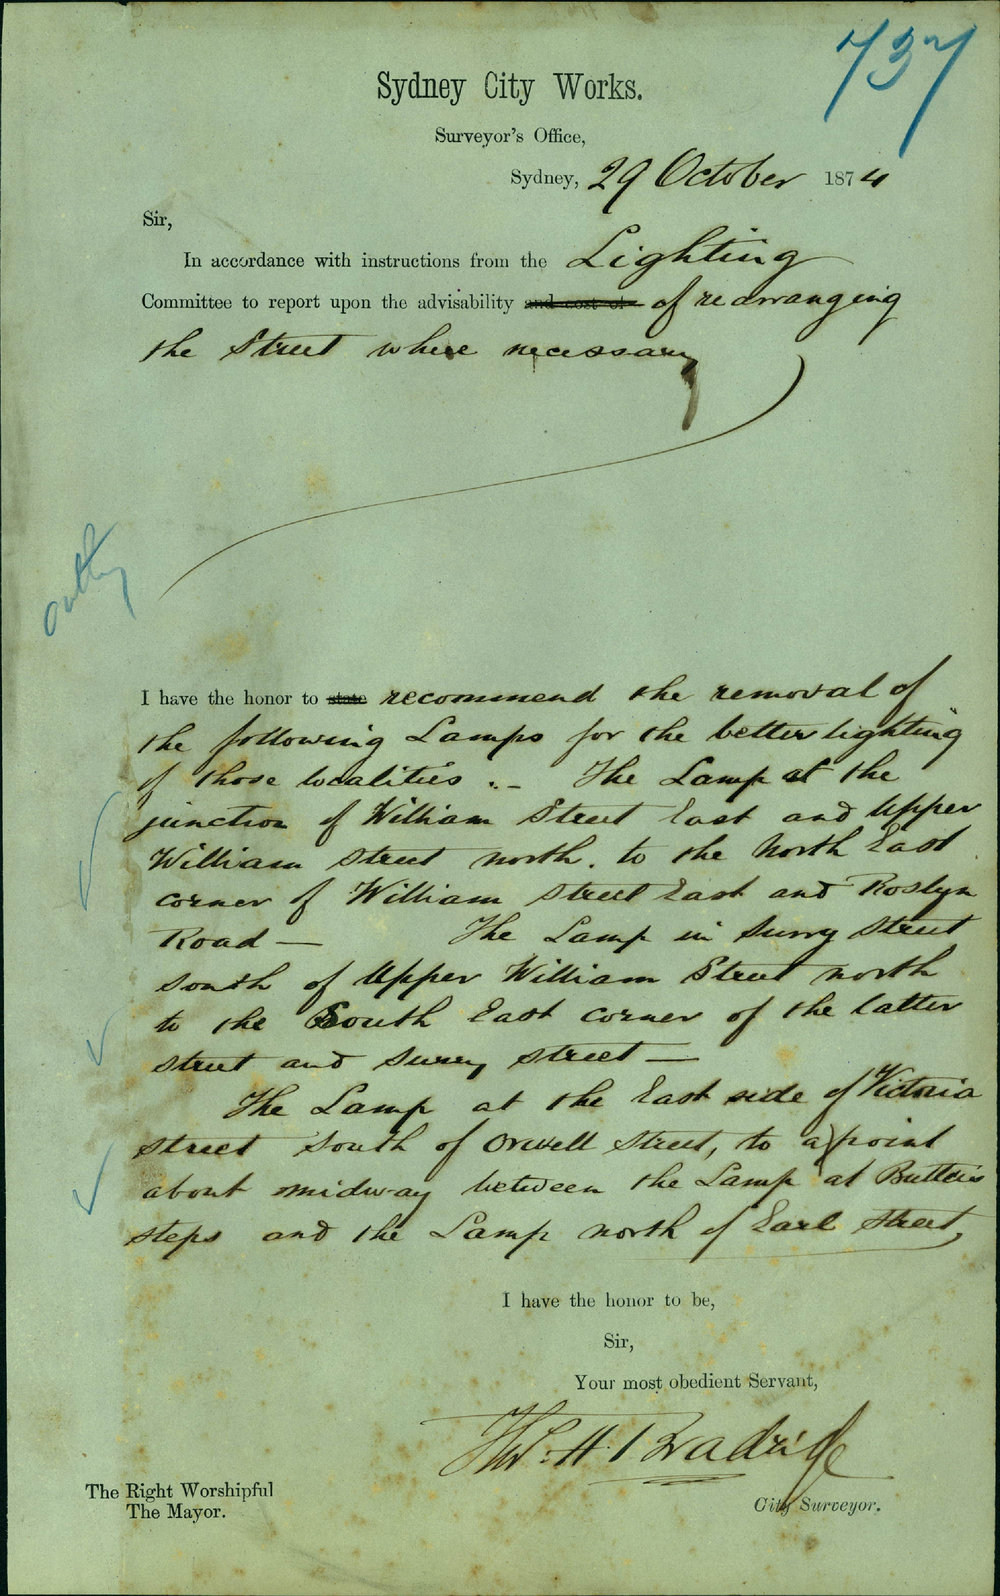 737
Sydney City Works.
Surveyor's Office,
Sydney, 29 October 1874
Sir,
In accordance with instructions from the Lighting
Committee to report upon the advisability and cost of of rearranging
the Street where necessary
I have the honor to state recommend the removal of
the following Lamps for the better lighting
of those localities :- The Lamp at the
junction of William Street East and Upper
William Street north. to the North East
corner of William Street East and Roslyn
Road — The Lamp in Surry Street
South of Upper William Street north
to the South East corner of the latter
street and Surry street —
The Lamp at the East side of Victoria
Street South of Orwell Street, to a point
about midway between the Lamp at Butlers
steps and the Lamp north of Earl Street,
I have the honor to be,
Sir,
Your most obedient Servant,
Thos. H. Bradridge
City Surveyor.
The Right Worshipful
The Mayor.